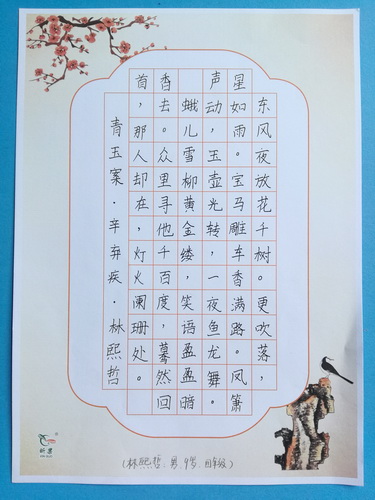 东风夜放花千树。更吹落，
星如雨。宝马雕车香满路。凤箫
声动，玉壶光转，一夜鱼龙舞。
蛾儿雪柳黄金缕，笑语盈盈暗
香去。众里寻他千百度，蓦然回
首，那人却在，灯火阑珊处。
青玉案·辛弃疾·林熙哲
（林熙哲，男，9岁，四年级）